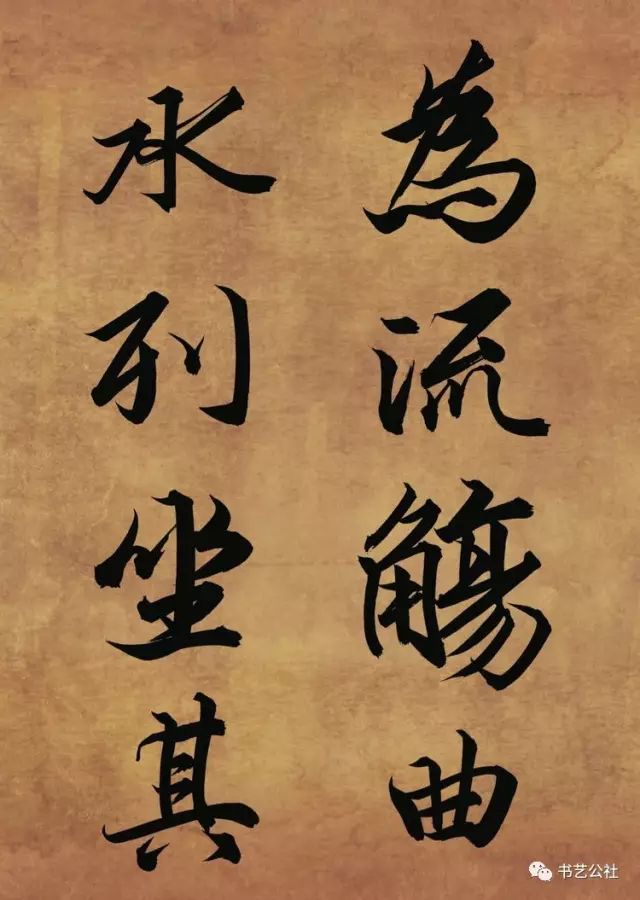 為流觴曲
水列坐其
书艺公社